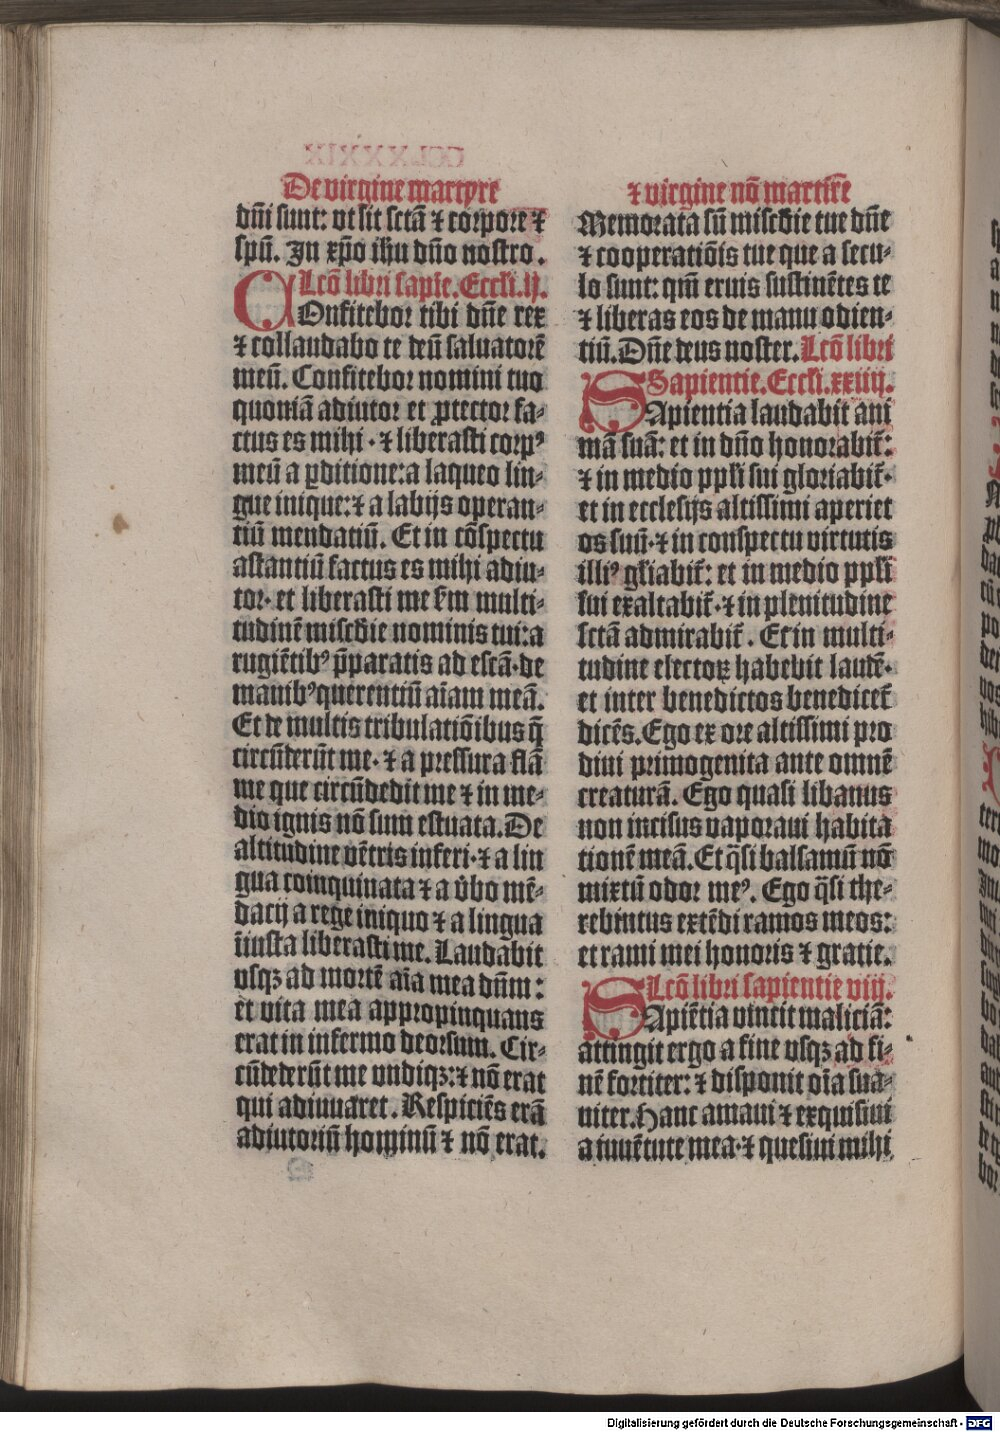 De virgine martyre
dñi sunt: vt sit sctã ⁊ corpore ⁊
spũ. In xp̃o ihũ dño nostro.
Lcõ libri sapie. Eccli. lj.
COnfitebor tibi dñe rex
⁊ collaudabo te deũ saluatorẽ
meũ. Confitebor nomini tuo
quoniã adiutor et ꝓtector fa-
ctus es mihi · ⁊ liberasti corpꝰ
meũ a ꝑditione: a laqueo lin-
gue inique: ⁊ a labijs operan-
tiũ mendatiũ. Et in cõspectu
astantiũ factus es mihi adiu-
tor· et liberasti me sm̃ multi-
tudinẽ misc̃die nominis tui: a
rugiẽtibꝰ p̃paratis ad escã· de
manibꝰ querentiũ aĩam meã.
Et de multis tribulatiõibus q̃
circũderũt me· ⁊ a pressura flã
me que circũdedit me ⁊ in me-
dio ignis nõ sum estuata. De
altitudine vẽtris inferi· ⁊ a lin
gua coinquinata ⁊ a v̉bo mẽ-
dacij a rege iniquo ⁊ a lingua
iĩusta liberasti me. Laudabit
vsqꝫ ad mortẽ aĩa mea dñm:
et vita mea appropinquans
erat in inferno deorsum. Cir-
cũdederũt me vndiqꝫ: ⁊ nõ erat
qui adiuuaret. Respiciẽs erã
adiutoriũ hominũ ⁊ nõ erat.
⁊ virgine nõ martir̃e
Memorata sũ misc̃die tue dñe
⁊ cooperatiõis tue que a secu-
lo sunt: qm̃ eruis sustinẽtes te
⁊ liberas eos de manu odien-
tiũ. Dñe deus noster. Lcõ libri
Sapientie. Eccli. xxiiij.
SApientia laudabit ani
mã suã: et in dño honorabit̃:
⁊ in medio ppłi sui gloriabit̃·
et in ecclesijs altissimi aperiet
os suũ· ⁊ in conspectu virtutis
illiꝰ gl̃iabit̃: et in medio ppłi
sui exaltabit̃· ⁊ in plenitudine
sctã admirabit̃. Et in multi-
tudine electoꝝ habebit laudẽ·
et inter benedictos benedicet̃
dicẽs. Ego ex ore altissimi pro
diui primogenita ante omnẽ
creaturã. Ego quasi libanus
non incisus vaporaui habita
tionẽ meã. Et q̃si balsamũ nõ
mixtũ odor meꝰ. Ego q̃si the-
rebintus extẽdi ramos meos:
et rami mei honoris ⁊ gratie.
Lcõ libri sapientie viij.
SApiẽtia vincit maliciã:
attingit ergo a fine vsqꝫ ad fi-
nẽ fortiter: ⁊ disponit oĩa sua-
uiter. Hanc amaui ⁊ exquisiui
a iuuẽtute mea· ⁊ quesiui mihi
Digitalisierung gefördert durch die Deutsche Forschungsgemeinschaft - DFG